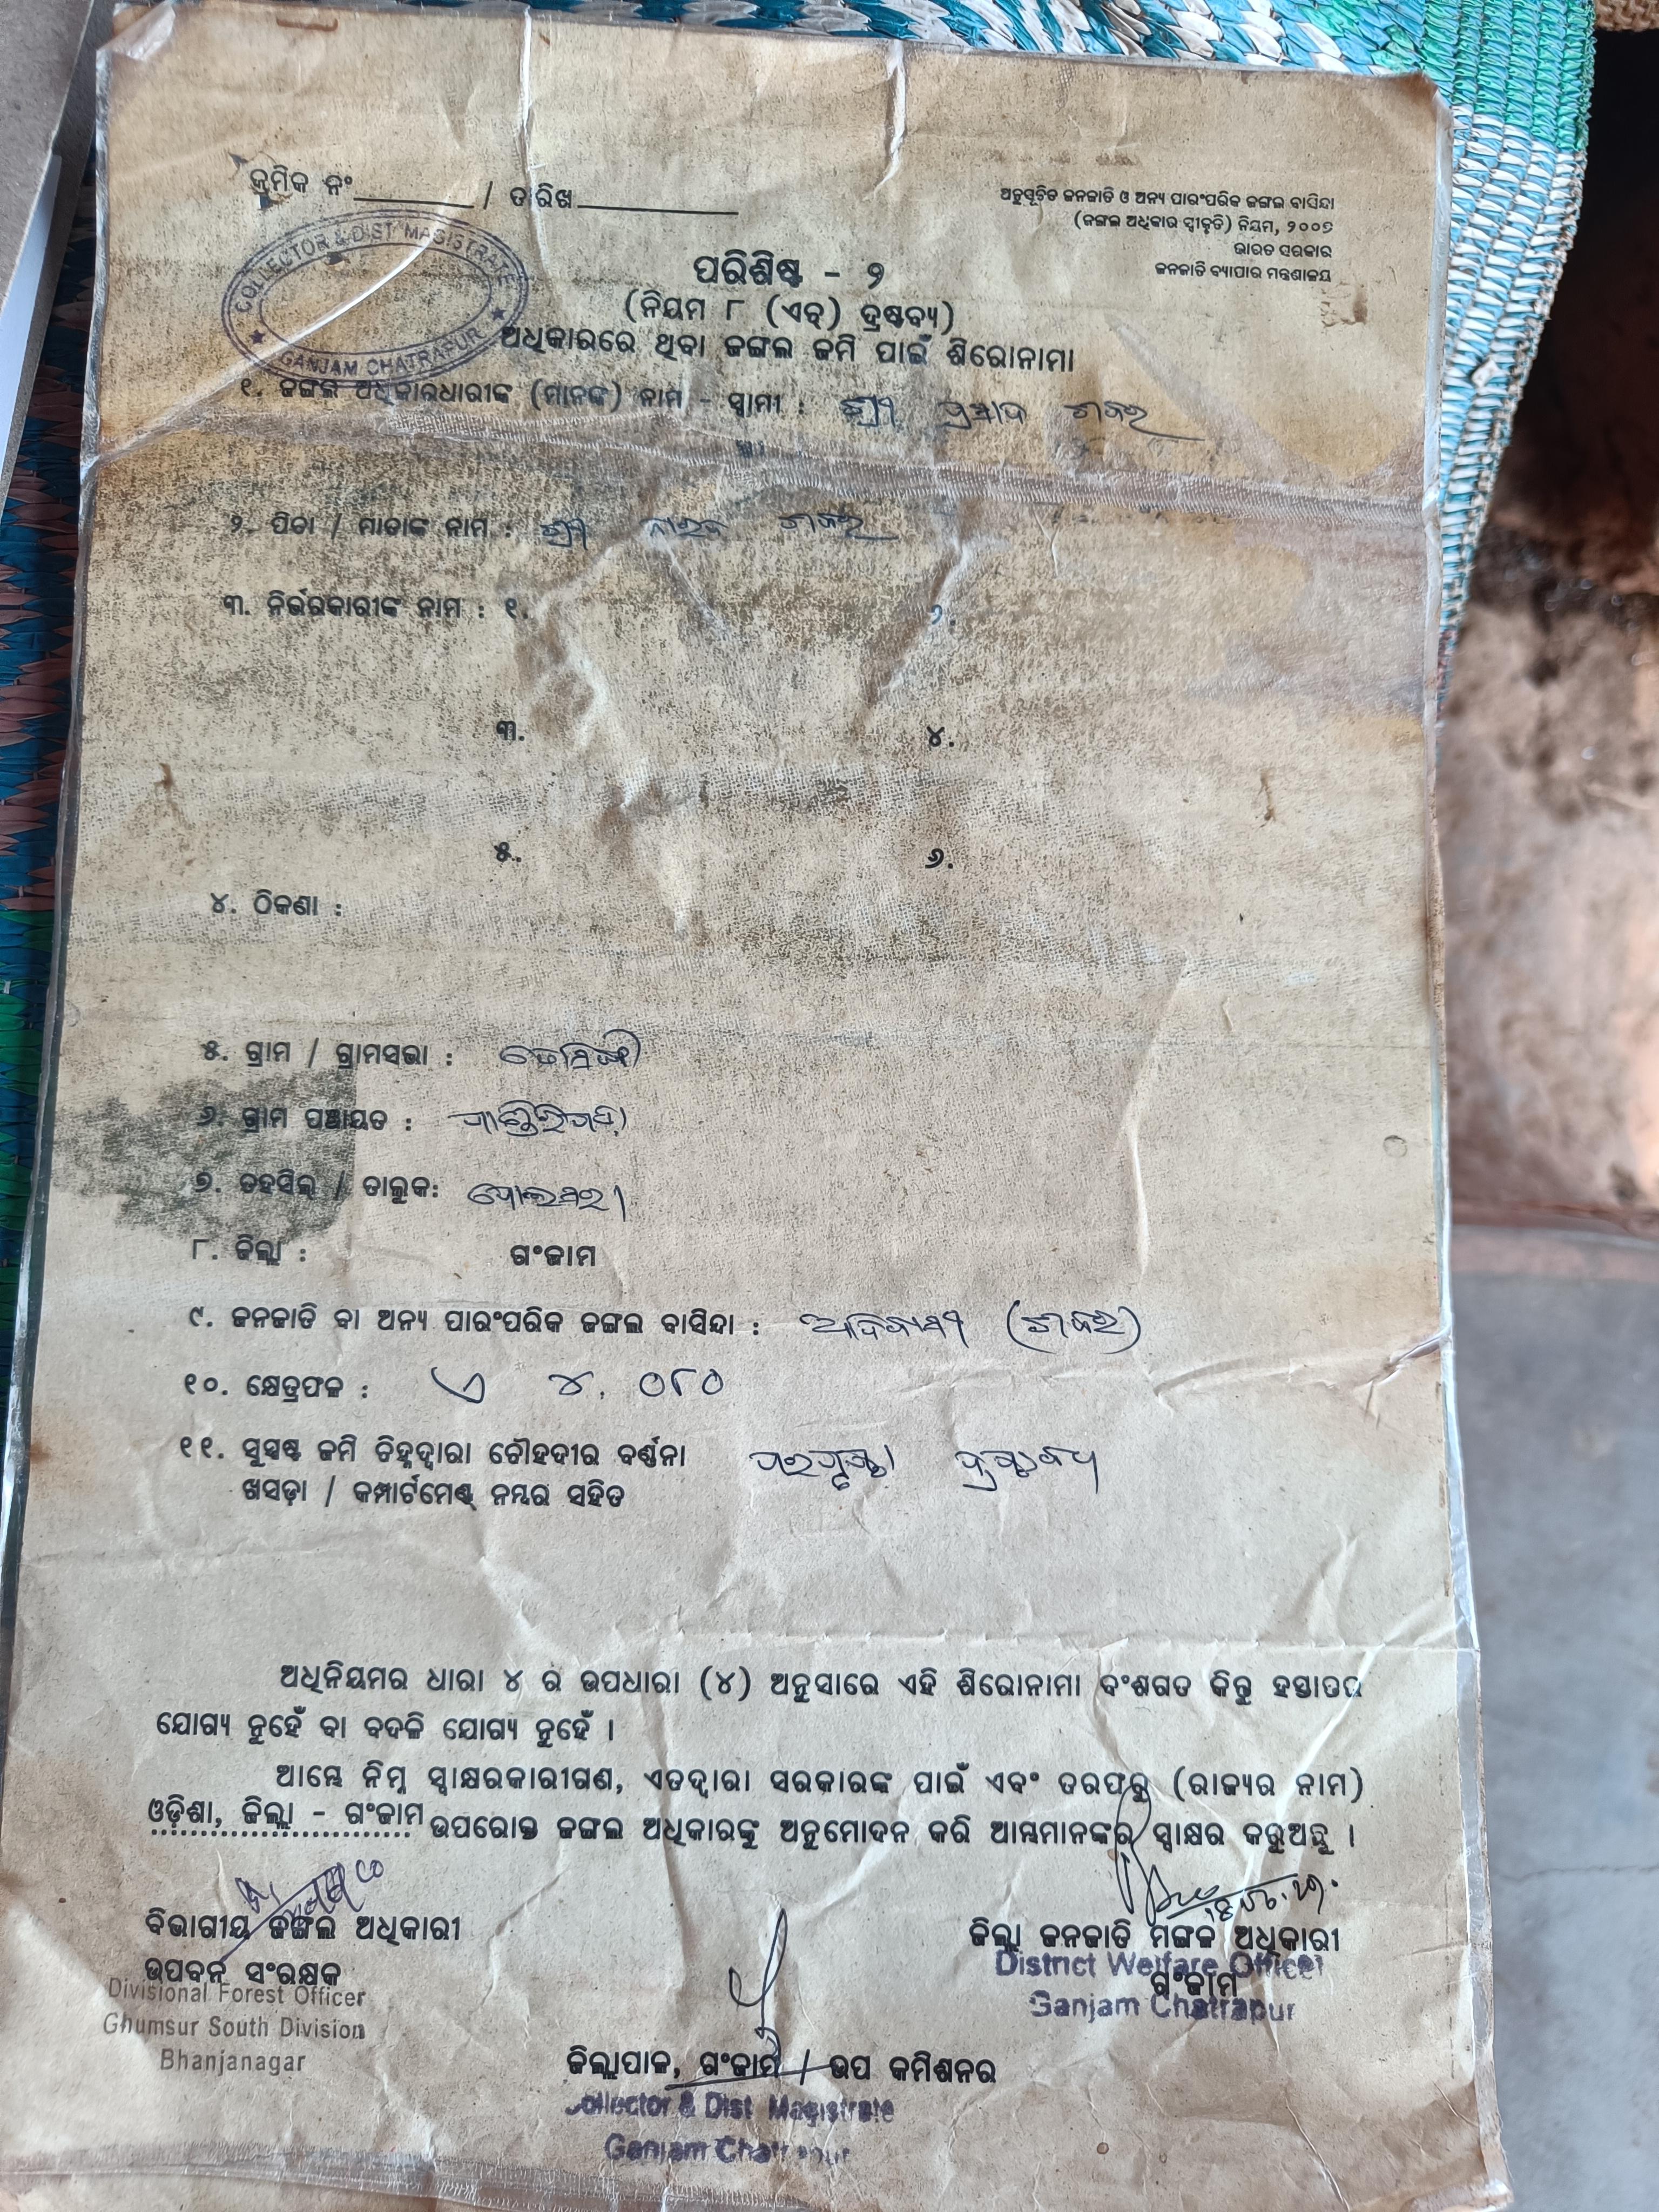 କ୍ରମିକ ନଂ / ତାରିଖ
ଅନୁସୂଚିତ ଜନଜାତି ଓ ଅନ୍ୟ ପାରଂପରିକ ଜଙ୍ଗଲ ବାସିନ୍ଦା
(ଜଙ୍ଗଲ ଅଧିକାର ସ୍ୱୀକୃତି) ନିୟମ, ୨୦୦୭
ଭାରତ ସରକାର
ଜନଜାତି ବ୍ୟାପାର ମନ୍ତ୍ରଣାଳୟ
COLLECTOR & DIST MAGISTRATE
GANJAM CHATRAPUR
ପରିଶିଷ୍ଟ - ୨
(ନିୟମ ୮ (ଏଚ୍) ଦ୍ରଷ୍ଟବ୍ୟ)
ଅଧିକାରରେ ଥିବା ଜଙ୍ଗଲ ଜମି ପାଇଁ ଶିରୋନାମା
୧. ଜଙ୍ଗଲ ଅଧିକାରଧାରୀଙ୍କ (ମାନଙ୍କ) ନାମ - ସ୍ୱାମୀ : ଶ୍ରୀ ଶବର
୨. ପିତା / ମାତାଙ୍କ ନାମ : ଶ୍ରୀ ଶବର
୩. ନିର୍ଭରକାରୀଙ୍କ ନାମ : ୧. ୨.
୩. ୪.
୫. ୬.
୪. ଠିକଣା :
୫. ଗ୍ରାମ / ଗ୍ରାମସଭା :
୬. ଗ୍ରାମ ପଞ୍ଚାୟତ :
୭. ତହସିଲ୍ / ତାଲୁକ:
୮. ଜିଲ୍ଲା : ଗଂଜାମ
୯. ଜନଜାତି ବା ଅନ୍ୟ ପାରଂପରିକ ଜଙ୍ଗଲ ବାସିନ୍ଦା : ଆଦିବାସୀ (ଶବର)
୧୦. କ୍ଷେତ୍ରଫଳ : ଏ ୪. ୦୮୦
୧୧. ସୁସ୍ପଷ୍ଟ ଜମି ଚିହ୍ନଦ୍ୱାରା ଚୌହଦୀର ବର୍ଣ୍ଣନା ପରପୃଷ୍ଠା ଦ୍ରଷ୍ଟବ୍ୟ
ଖସଡ଼ା / କମ୍ପାର୍ଟମେଣ୍ଟ୍ ନମ୍ବର ସହିତ
ଅଧିନିୟମର ଧାରା ୪ ର ଉପଧାରା (୪) ଅନୁସାରେ ଏହି ଶିରୋନାମା ବଂଶଗତ କିନ୍ତୁ ହସ୍ତାନ୍ତର
ଯୋଗ୍ୟ ନୁହେଁ ବା ବଦଳି ଯୋଗ୍ୟ ନୁହେଁ ।
ଆମ୍ଭେ ନିମ୍ନ ସ୍ୱାକ୍ଷରକାରୀଗଣ, ଏତଦ୍ୱାରା ସରକାରଙ୍କ ପାଇଁ ଏବଂ ତରଫରୁ (ରାଜ୍ୟର ନାମ)
ଓଡ଼ିଶା, ଜିଲ୍ଲା - ଗଂଜାମ ଉପରୋକ୍ତ ଜଙ୍ଗଲ ଅଧିକାରଙ୍କୁ ଅନୁମୋଦନ କରି ଆମ୍ଭମାନଙ୍କର ସ୍ୱାକ୍ଷର କରୁଅଛୁ ।
ବିଭାଗୀୟ ଜଙ୍ଗଲ ଅଧିକାରୀ
ଉପବନ ସଂରକ୍ଷକ
Divisional Forest Officer
Ghumsur South Division
Bhanjanagar
ଜିଲ୍ଲା ଜନଜାତି ମଙ୍ଗଳ ଅଧିକାରୀ
District Welfare Officer
ଗଂଜାମ
Ganjam Chatrapur
ଜିଲ୍ଲାପାଳ, ଗଂଜାମ / ଉପ କମିଶନର
Collector & Dist Magistrate
Ganjam Chatrapur